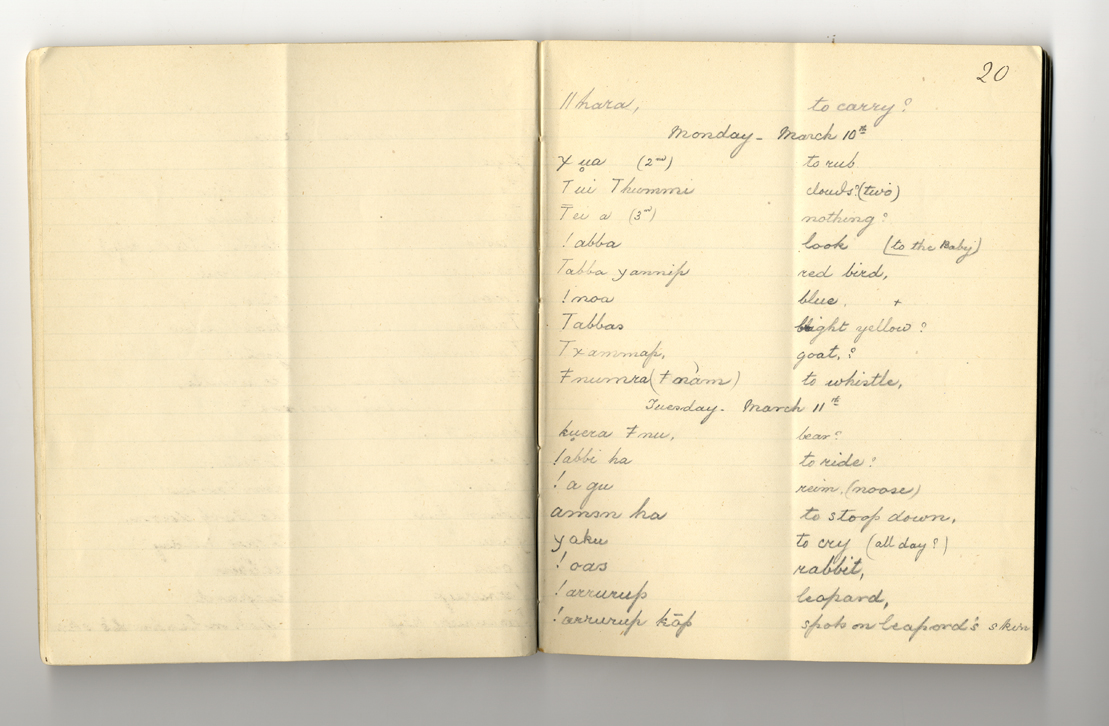 20
ǁhara, to carry?
Monday - March 10th
χ u̥a (2nd) to rub
Tui Thommi clouds? (two)
Tei a (3rd) nothing?
!abba look (to the Baby)
Tabba yannip red bird,
!noa blue. +
Tabbas bright yellow?
Txammap, goat,?
ǂnumra (ǂnàm) to whistle,
Tuesday - March 11th
ku̥era ǂnu, bear?
!abbi ha to ride?
!a gu reim, (noose)
amsn ha to stoop down,
yaku to cry (all day?)
!oas rabbit,
!arrurup leopard,
!arrurup kōp spots on leapord's skin